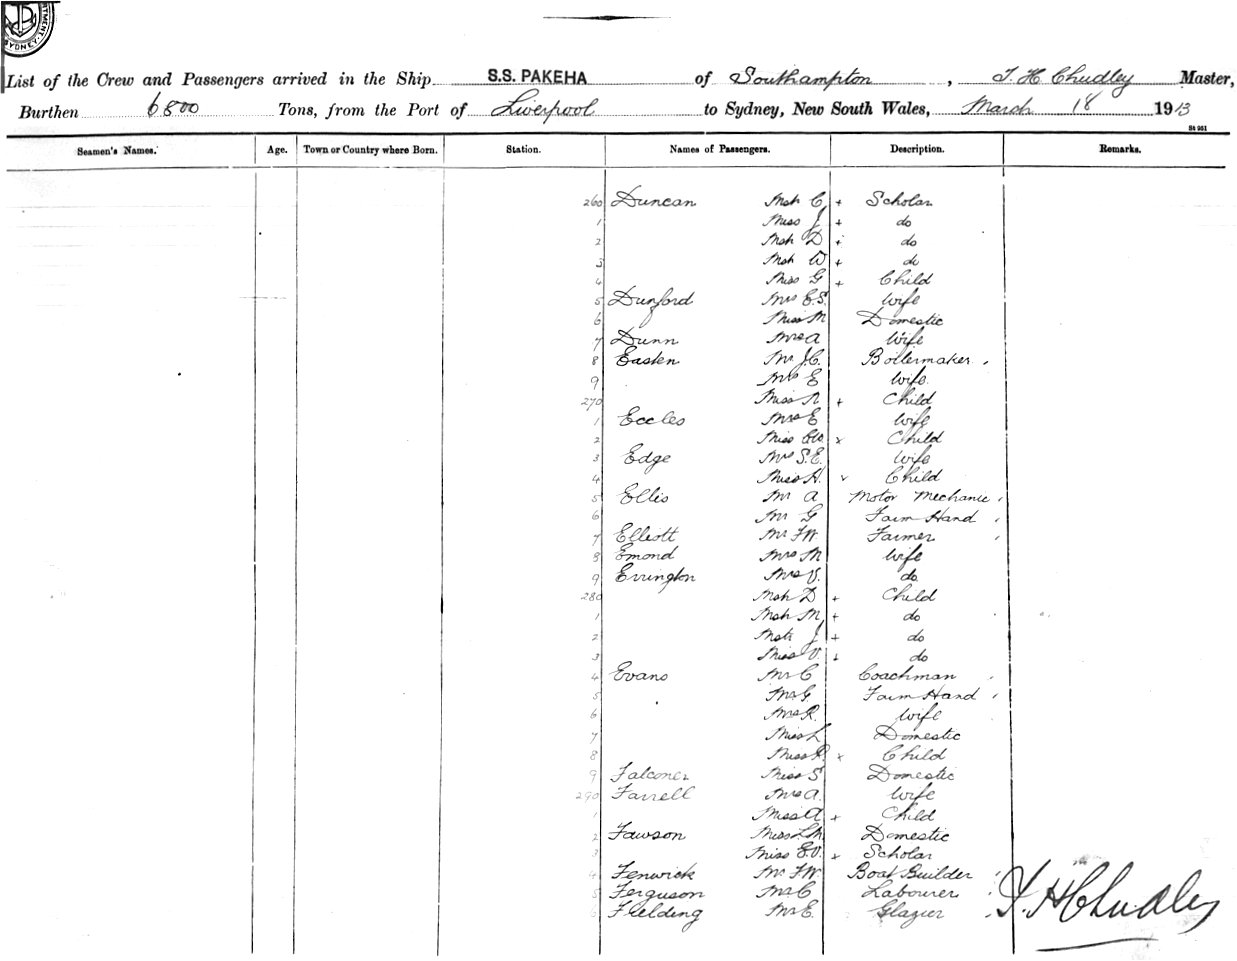 SYDNEY
List of the Crew and Passengers arrived in the Ship S.S. PAKEHA of Southampton, J. H. Chudley Master,
Burthen 6800 Tons, from the Port of Liverpool to Sydney, New South Wales, March 18 1913
St 951
Seamen's Names. Age. Town or Country where Born. Station. Names of Passengers. Description. Remarks.
260 Duncan Mstr C + Scholar
1 Miss J + do
2 Mstr D + do
3 Mstr W + do
4 Miss G + Child
5 Dunford Mrs E.S. Wife
6 Miss M Domestic
7 Dunn Mrs A Wife
8 Easten Mr J.C. Boilermaker
9 Mrs E Wife
270 Miss N + Child
1 Eccles Mrs E Wife
2 Miss x Child
3 Edge Mrs S.E. Wife
4 Miss H. Child
5 Ellis Mr A Motor Mechanic
6 Mr G Farm Hand
7 Elliott Mr F.W. Farmer
8 Emond Mrs M Wife
9 Errington Mrs V. do
280 Mstr D + Child
1 Mstr M + do
2 Mstr J + do
3 Miss V. + do
4 Evans Mr C Coachman
5 Mr G Farm Hand
6 Mrs R. Wife
7 Miss L Domestic
8 Miss R. x Child
9 Falconer Miss S Domestic
290 Farrell Mrs A. Wife
1 Miss A x Child
2 Fawson Miss L.M. Domestic
3 Miss E.V. x Scholar
4 Fenwick Mr F.W. Boat Builder
5 Ferguson Mr C Labourer
6 Fielding Mr E. Glazier
J. H Chudley